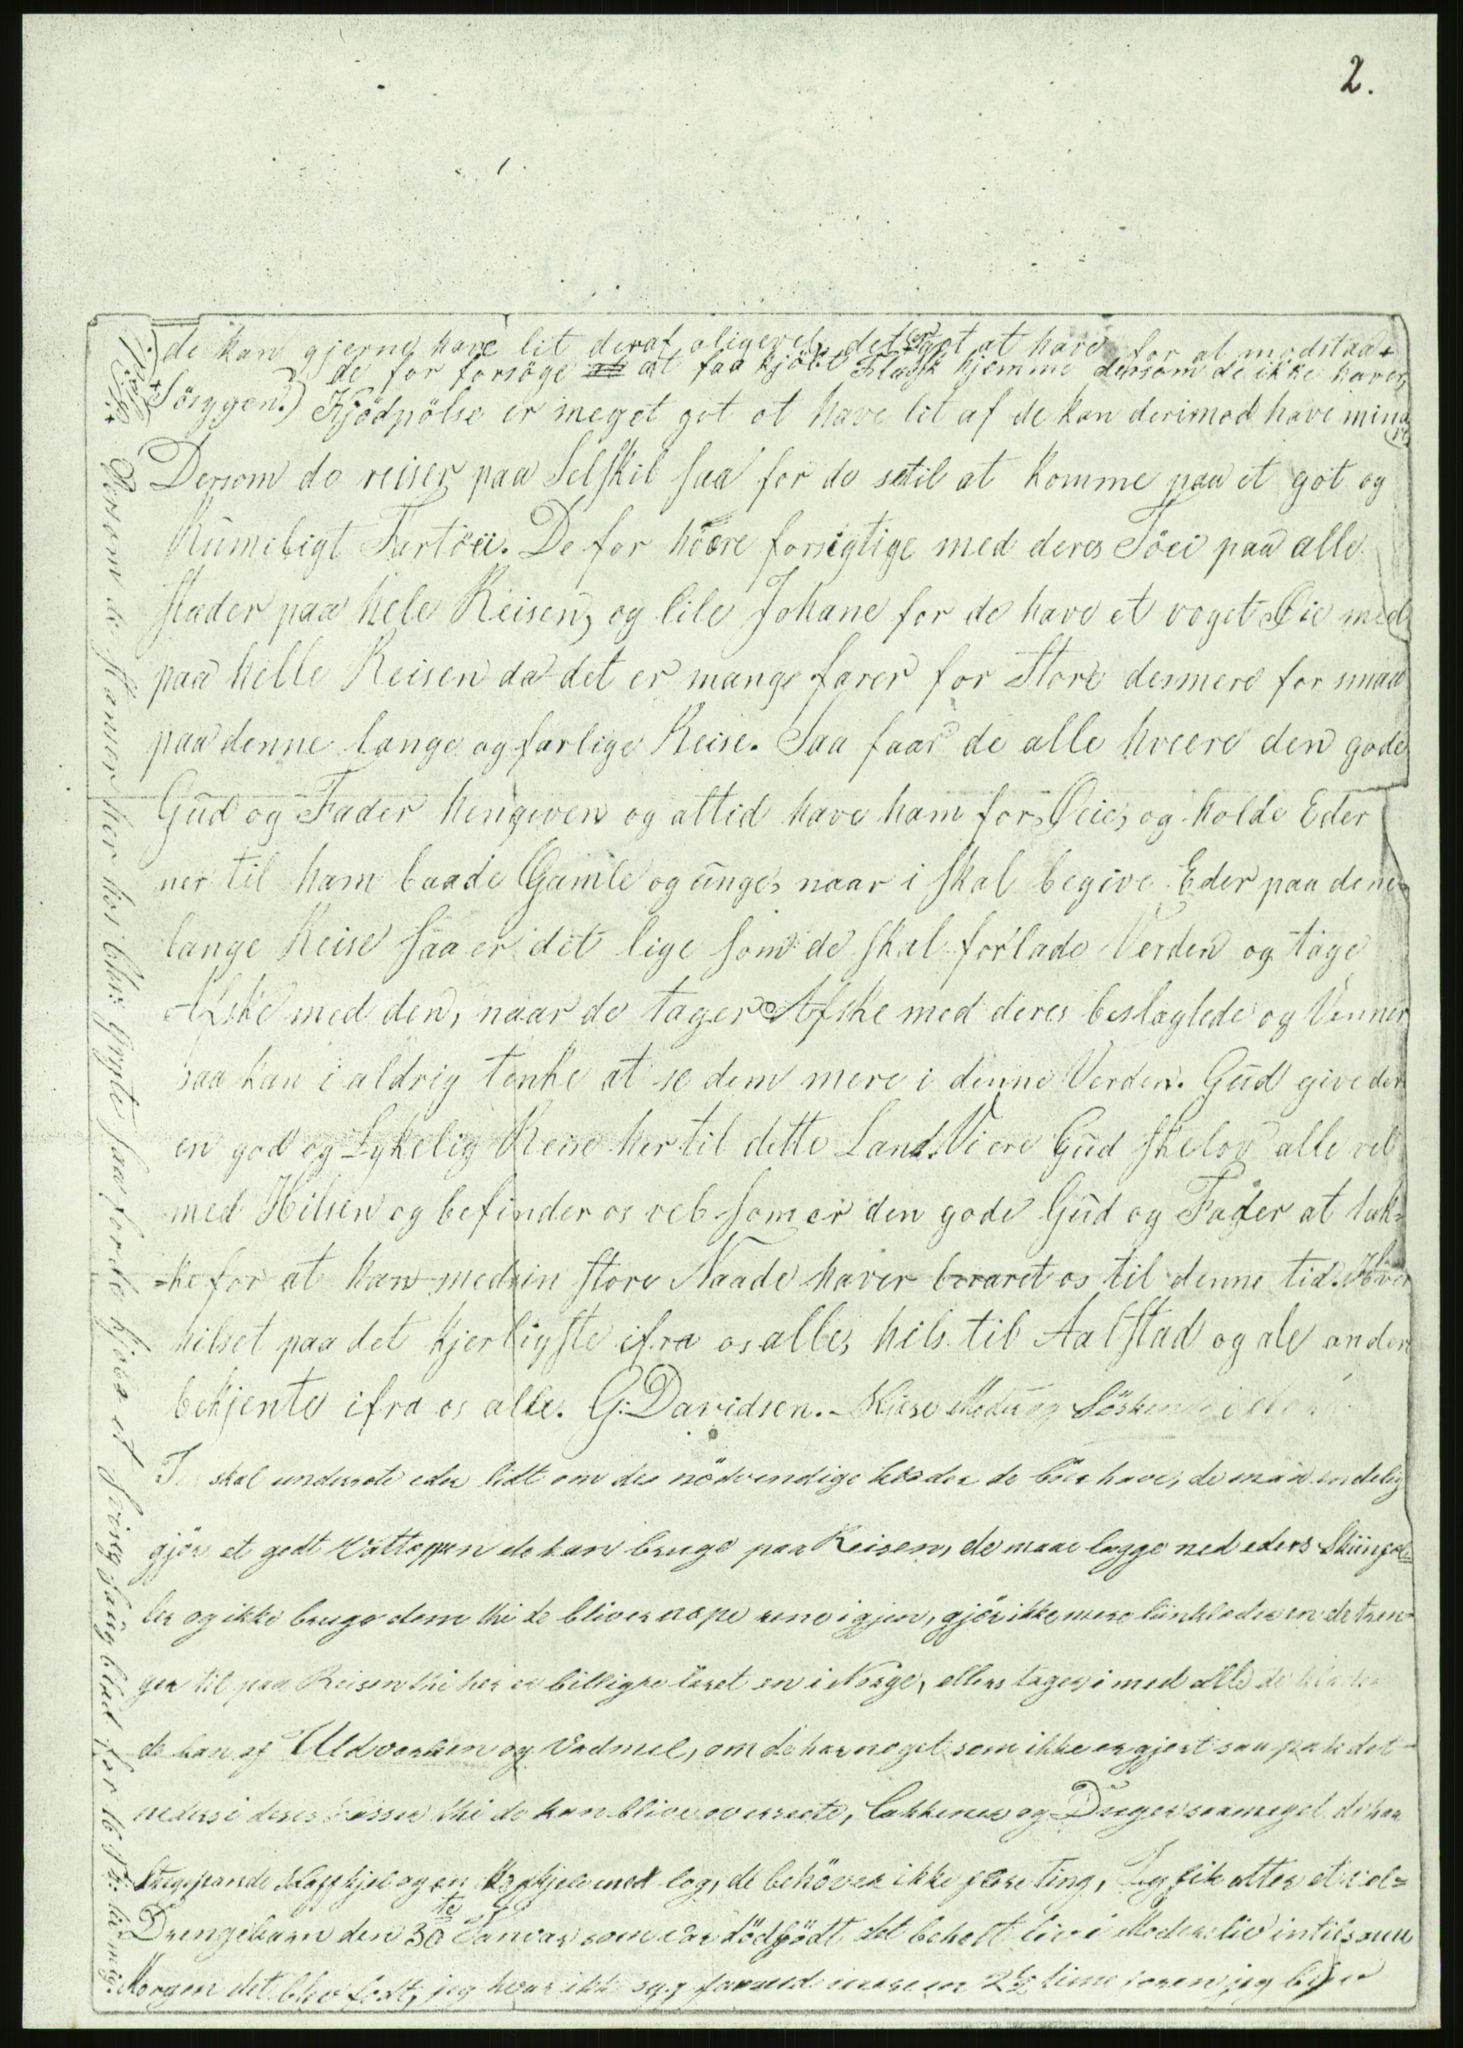 2.
de kan gjerne have lit deraf aligevel, det er got at have for at modstaa
de for forsöge at faa kjöbt Flæsk hjemme dersom de ikke haver,
Sösygen.) Kjödpölse er meget got at have lit af de kan derimod have mindre
Dersom de reiser paa Selskil saa for de se til at komme paa et got og
Rumeligt Fartöei. De for hvære forsigtige med deres Töei paa alle
stæder paa hele Reisen, og lile Johane for de have et voget Öie med
paa helle Reisen da det er mange farer for Store desmere for smaa
paa denne lange og farlige Reise. Saa faar de alle hvære den gode
Gud og Fader hengiven og altid have ham for Öeie, og holde Eder
ner til ham baade Gamle og unge, naar i skal begive Eder paa dene
lange Reise saa er det lige som de skal forlade Verden og tage
Afske med den, naar de tager Afske med deres beslagtede og Venner
saa kan i aldrig tenke at se dem mere i denne Verden. Gud give der
en god og Lykelig Reise her til dette Land. Vi ere Gud ske lov alle vel
med Hilsen og befinder os vel som er den gode Gud og Fader at tak-
=ke for at han med sin store Naade haver bevaret os til denne tid. Hver
hilset paa det kjerligste ifra os alle, hils til Aalstad og ale andre
bekjente ifra os alle. G: Davidsen. Kjere Moder og Sösken
I skal underrete eder lidt om de nödvendige klæder de bör have, de maa endelig
gjör et godt Vattæppen de kan bruge paa Reisen, de maae legge ned eders Skinfel=
ler og ikke bruge dem thi de bliver nope rene igjen, gjör ikke mere linklæder en de tren-
ger til paa Reisen thi her er billigre leret en i Norge, ellers tager i med alle de klæder
de kan af Uldvorken og Vadmel, om de har noget som ikke er gjort saa pak det
neders i deres kasser thi de kan blive overseete, Lakkener og Duger saameget de har
Stegepande Kaffekjel og en Kopkjele med log, de behöver ikke flere ting, Jeg fik atter et vel=
Drengebarn den 30te Januar som var dödfödt det beholt liv i Moders liv intil samme
Morgen det blev födt, jeg hvar ikke syg formed mere en 2½ time foren jeg blev
Dersom de kommer her hos Chr: Gryte saa for de kjöbe et Svinelaug blad for 16 Sk: til mig.